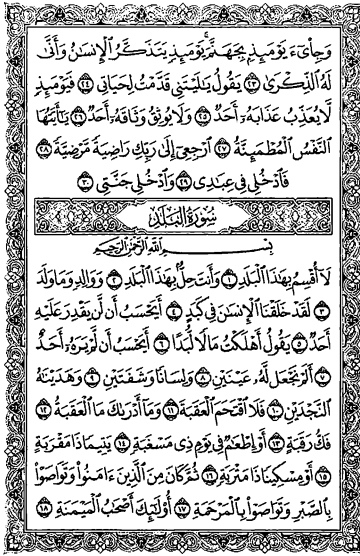 وَجِاْىٓءَ يَوْمَئِذٍۭ بِجَهَنَّمَ ۚ يَوْمَئِذٍ يَتَذَكَّرُ ٱلْإِنسَٰنُ وَأَنَّىٰ
لَهُ ٱلذِّكْرَىٰ ٢٣ يَقُولُ يَٰلَيْتَنِى قَدَّمْتُ لِحَيَاتِى ٢٤ فَيَوْمَئِذٍ
لَّا يُعَذِّبُ عَذَابَهُۥٓ أَحَدٌ ٢٥ وَلَا يُوثِقُ وَثَاقَهُۥٓ أَحَدٌ ٢٦ يَٰٓأَيَّتُهَا
ٱلنَّفْسُ ٱلْمُطْمَئِنَّةُ ٢٧ ٱرْجِعِىٓ إِلَىٰ رَبِّكِ رَاضِيَةً مَّرْضِيَّةً ٢٨
فَٱدْخُلِى فِى عِبَٰدِى ٢٩ وَٱدْخُلِى جَنَّتِى ٣٠
سُورَةُ ٱلْبَلَدِ
بِسْمِ ٱللَّهِ ٱلرَّحْمَٰنِ ٱلرَّحِيمِ
لَآ أُقْسِمُ بِهَٰذَا ٱلْبَلَدِ ١ وَأَنتَ حِلٌّۢ بِهَٰذَا ٱلْبَلَدِ ٢ وَوَالِدٍ وَمَا وَلَدَ
٣ لَقَدْ خَلَقْنَا ٱلْإِنسَٰنَ فِى كَبَدٍ ٤ أَيَحْسَبُ أَن لَّن يَقْدِرَ عَلَيْهِ
أَحَدٌ ٥ يَقُولُ أَهْلَكْتُ مَالًا لُّبَدًا ٦ أَيَحْسَبُ أَن لَّمْ يَرَهُۥٓ أَحَدٌ
٧ أَلَمْ نَجْعَل لَّهُۥ عَيْنَيْنِ ٨ وَلِسَانًا وَشَفَتَيْنِ ٩ وَهَدَيْنَٰهُ
ٱلنَّجْدَيْنِ ١٠ فَلَا ٱقْتَحَمَ ٱلْعَقَبَةَ ١١ وَمَآ أَدْرَىٰكَ مَا ٱلْعَقَبَةُ ١٢
فَكُّ رَقَبَةٍ ١٣ أَوْ إِطْعَٰمٌ فِى يَوْمٍ ذِى مَسْغَبَةٍ ١٤ يَتِيمًا ذَا مَقْرَبَةٍ
١٥ أَوْ مِسْكِينًا ذَا مَتْرَبَةٍ ١٦ ثُمَّ كَانَ مِنَ ٱلَّذِينَ ءَامَنُوا۟ وَتَوَاصَوْا۟
بِٱلصَّبْرِ وَتَوَاصَوْا۟ بِٱلْمَرْحَمَةِ ١٧ أُو۟لَٰٓئِكَ أَصْحَٰبُ ٱلْمَيْمَنَةِ ١٨